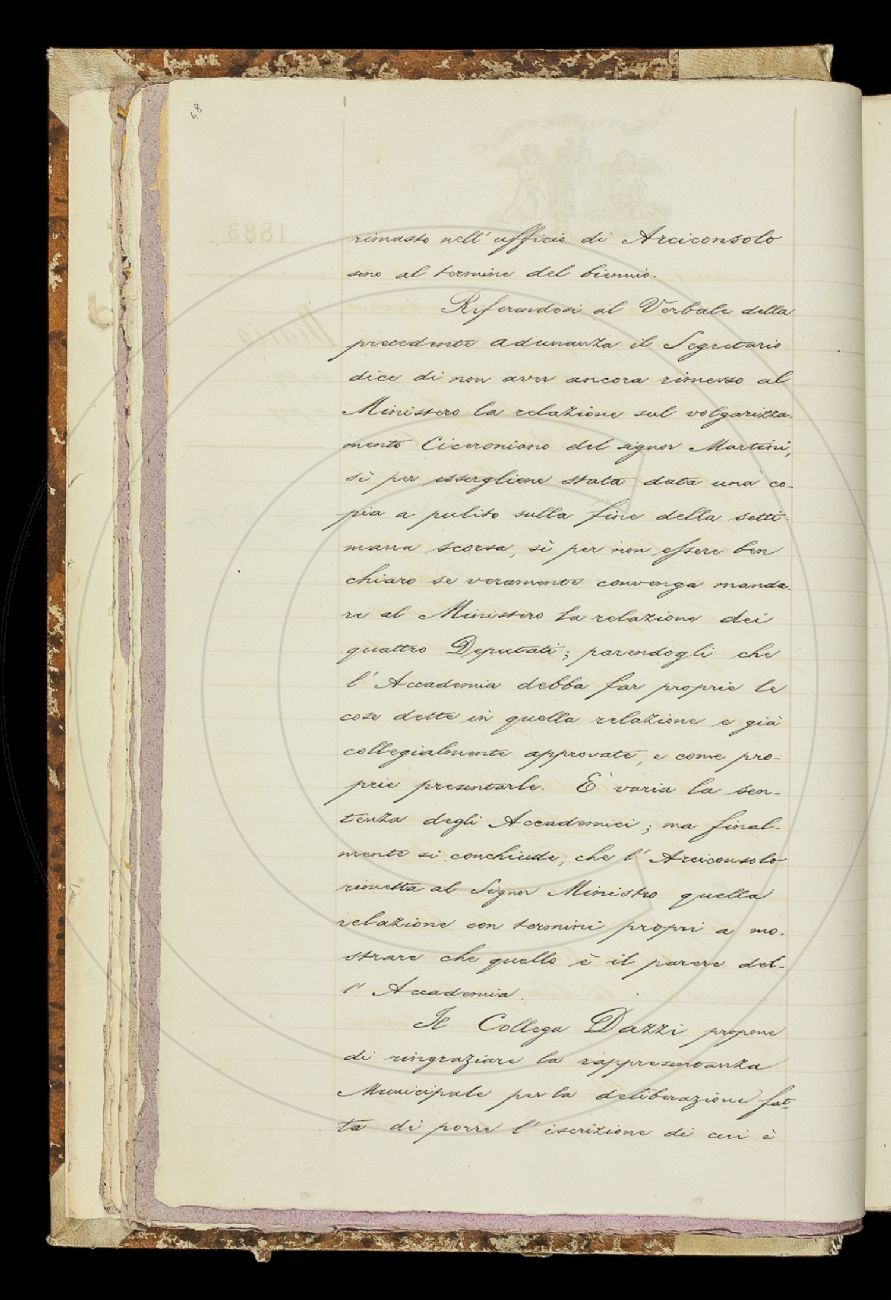 58
rimasto nell'ufficio di Arciconsolo
sino al termine del biennio.
Riferendosi al Verbale della
precedente adunanza il Segretario
dice di non aver ancora rimesso al
Ministero la relazione sul volgarizza-
mento Ciceroniano del signor Martini,
sì per essergliene stata data una co-
pia a pulito sulla fine della setti-
mana scorsa, sì per non essere ben
chiaro se veramente convenga manda-
re al Ministero la relazione dei
quattro Deputati; parendogli che
l'Accademia debba far proprie le
cose dette in quella relazione e già
collegialmente approvate, e come pro-
prie presentarle. È varia la sen-
tenza degli Accademici; ma final-
mente si conchiude, che l'Arciconsolo
rimetta al Signor Ministro quella
relazione con termini propri a mo-
strare che quello è il parere del-
l'Accademia.
Il Collega Dazzi propone
di ringraziare la rappresentanza
Municipale per la deliberazione fat-
ta di porre l'iscrizione di cui è
1883